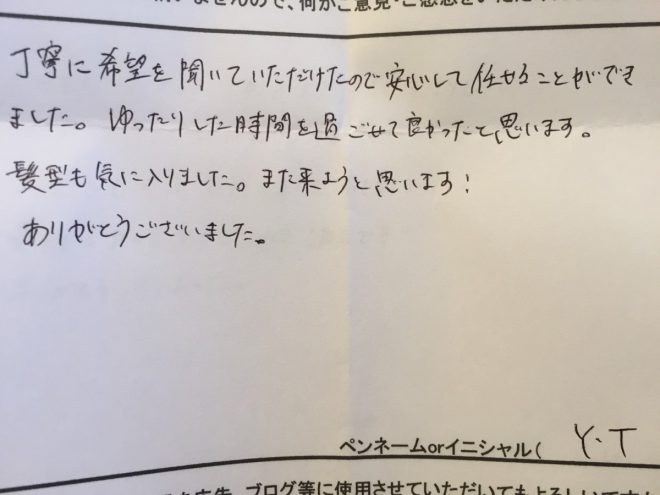 ませんので、何かご意見・ご感想をいただ
丁寧に希望を聞いていただけたので安心して任せることができ
ました。ゆったりした時間を過ごせて良かったと思います。
髪型も気に入りました。また来ようと思います!
ありがとうございました。
ペンネームorイニシャル( Y・T
ブログ等に使用させていただいてもよろしいですか